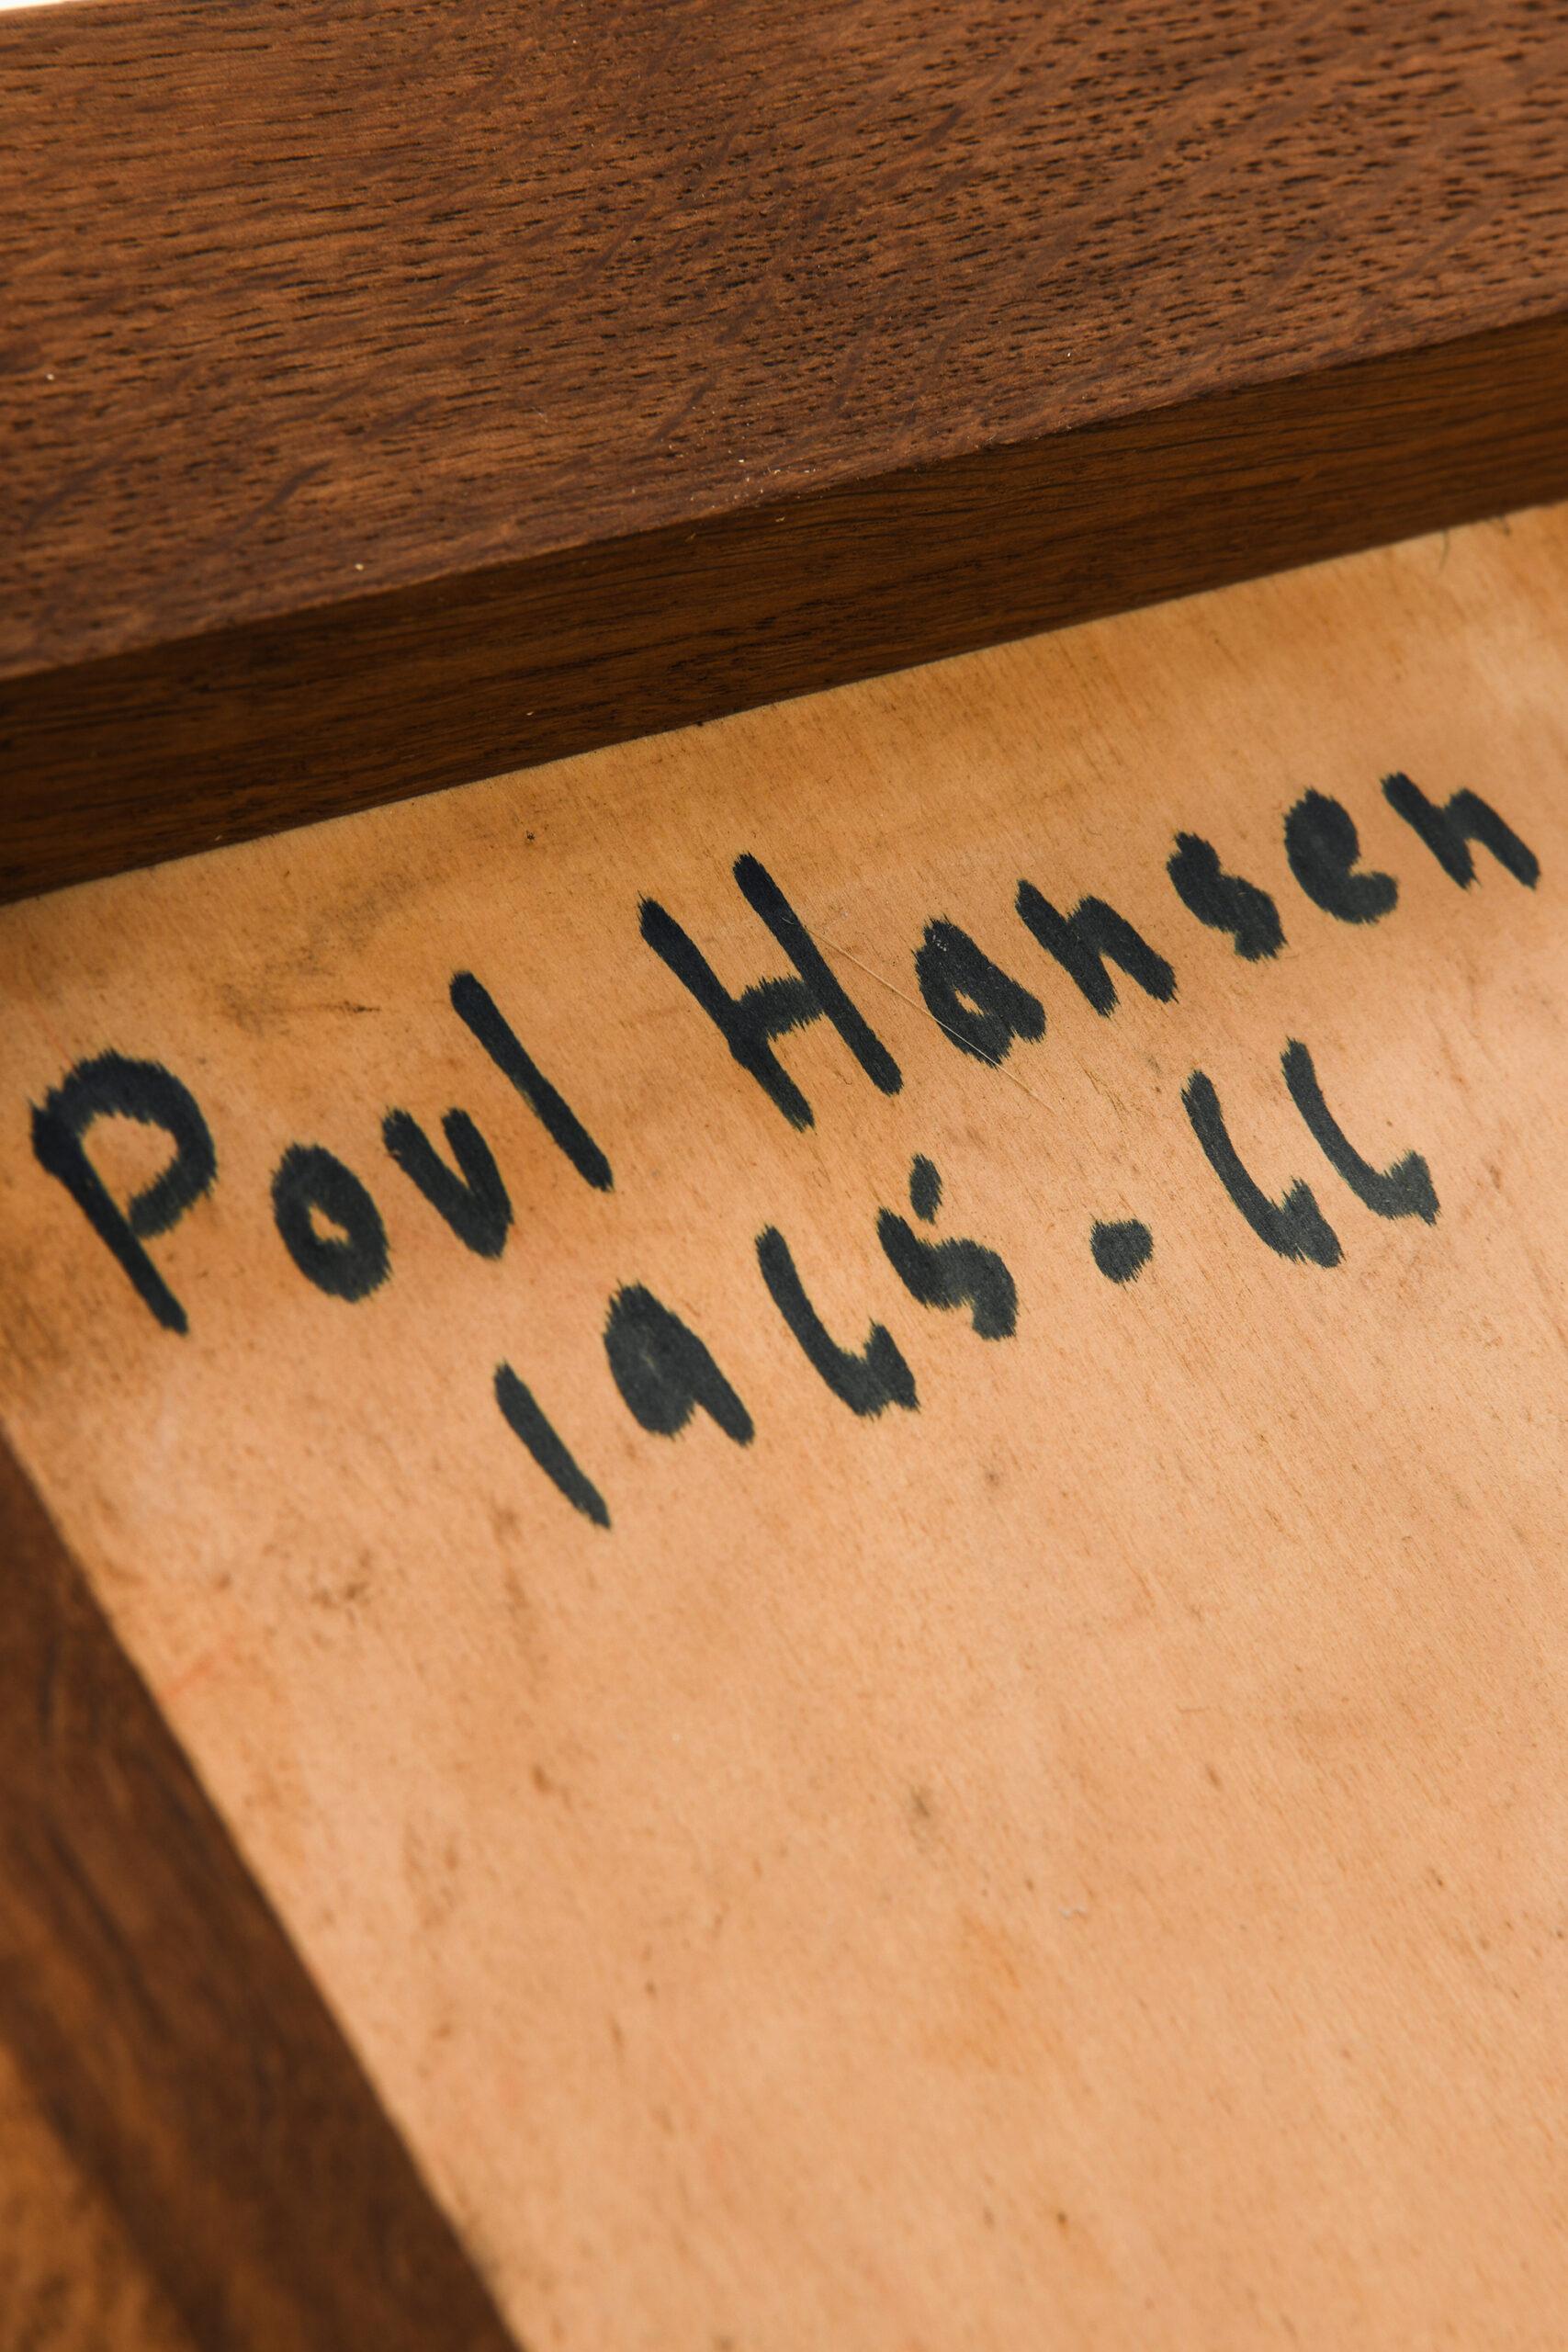 Poul Hansen
1965-66